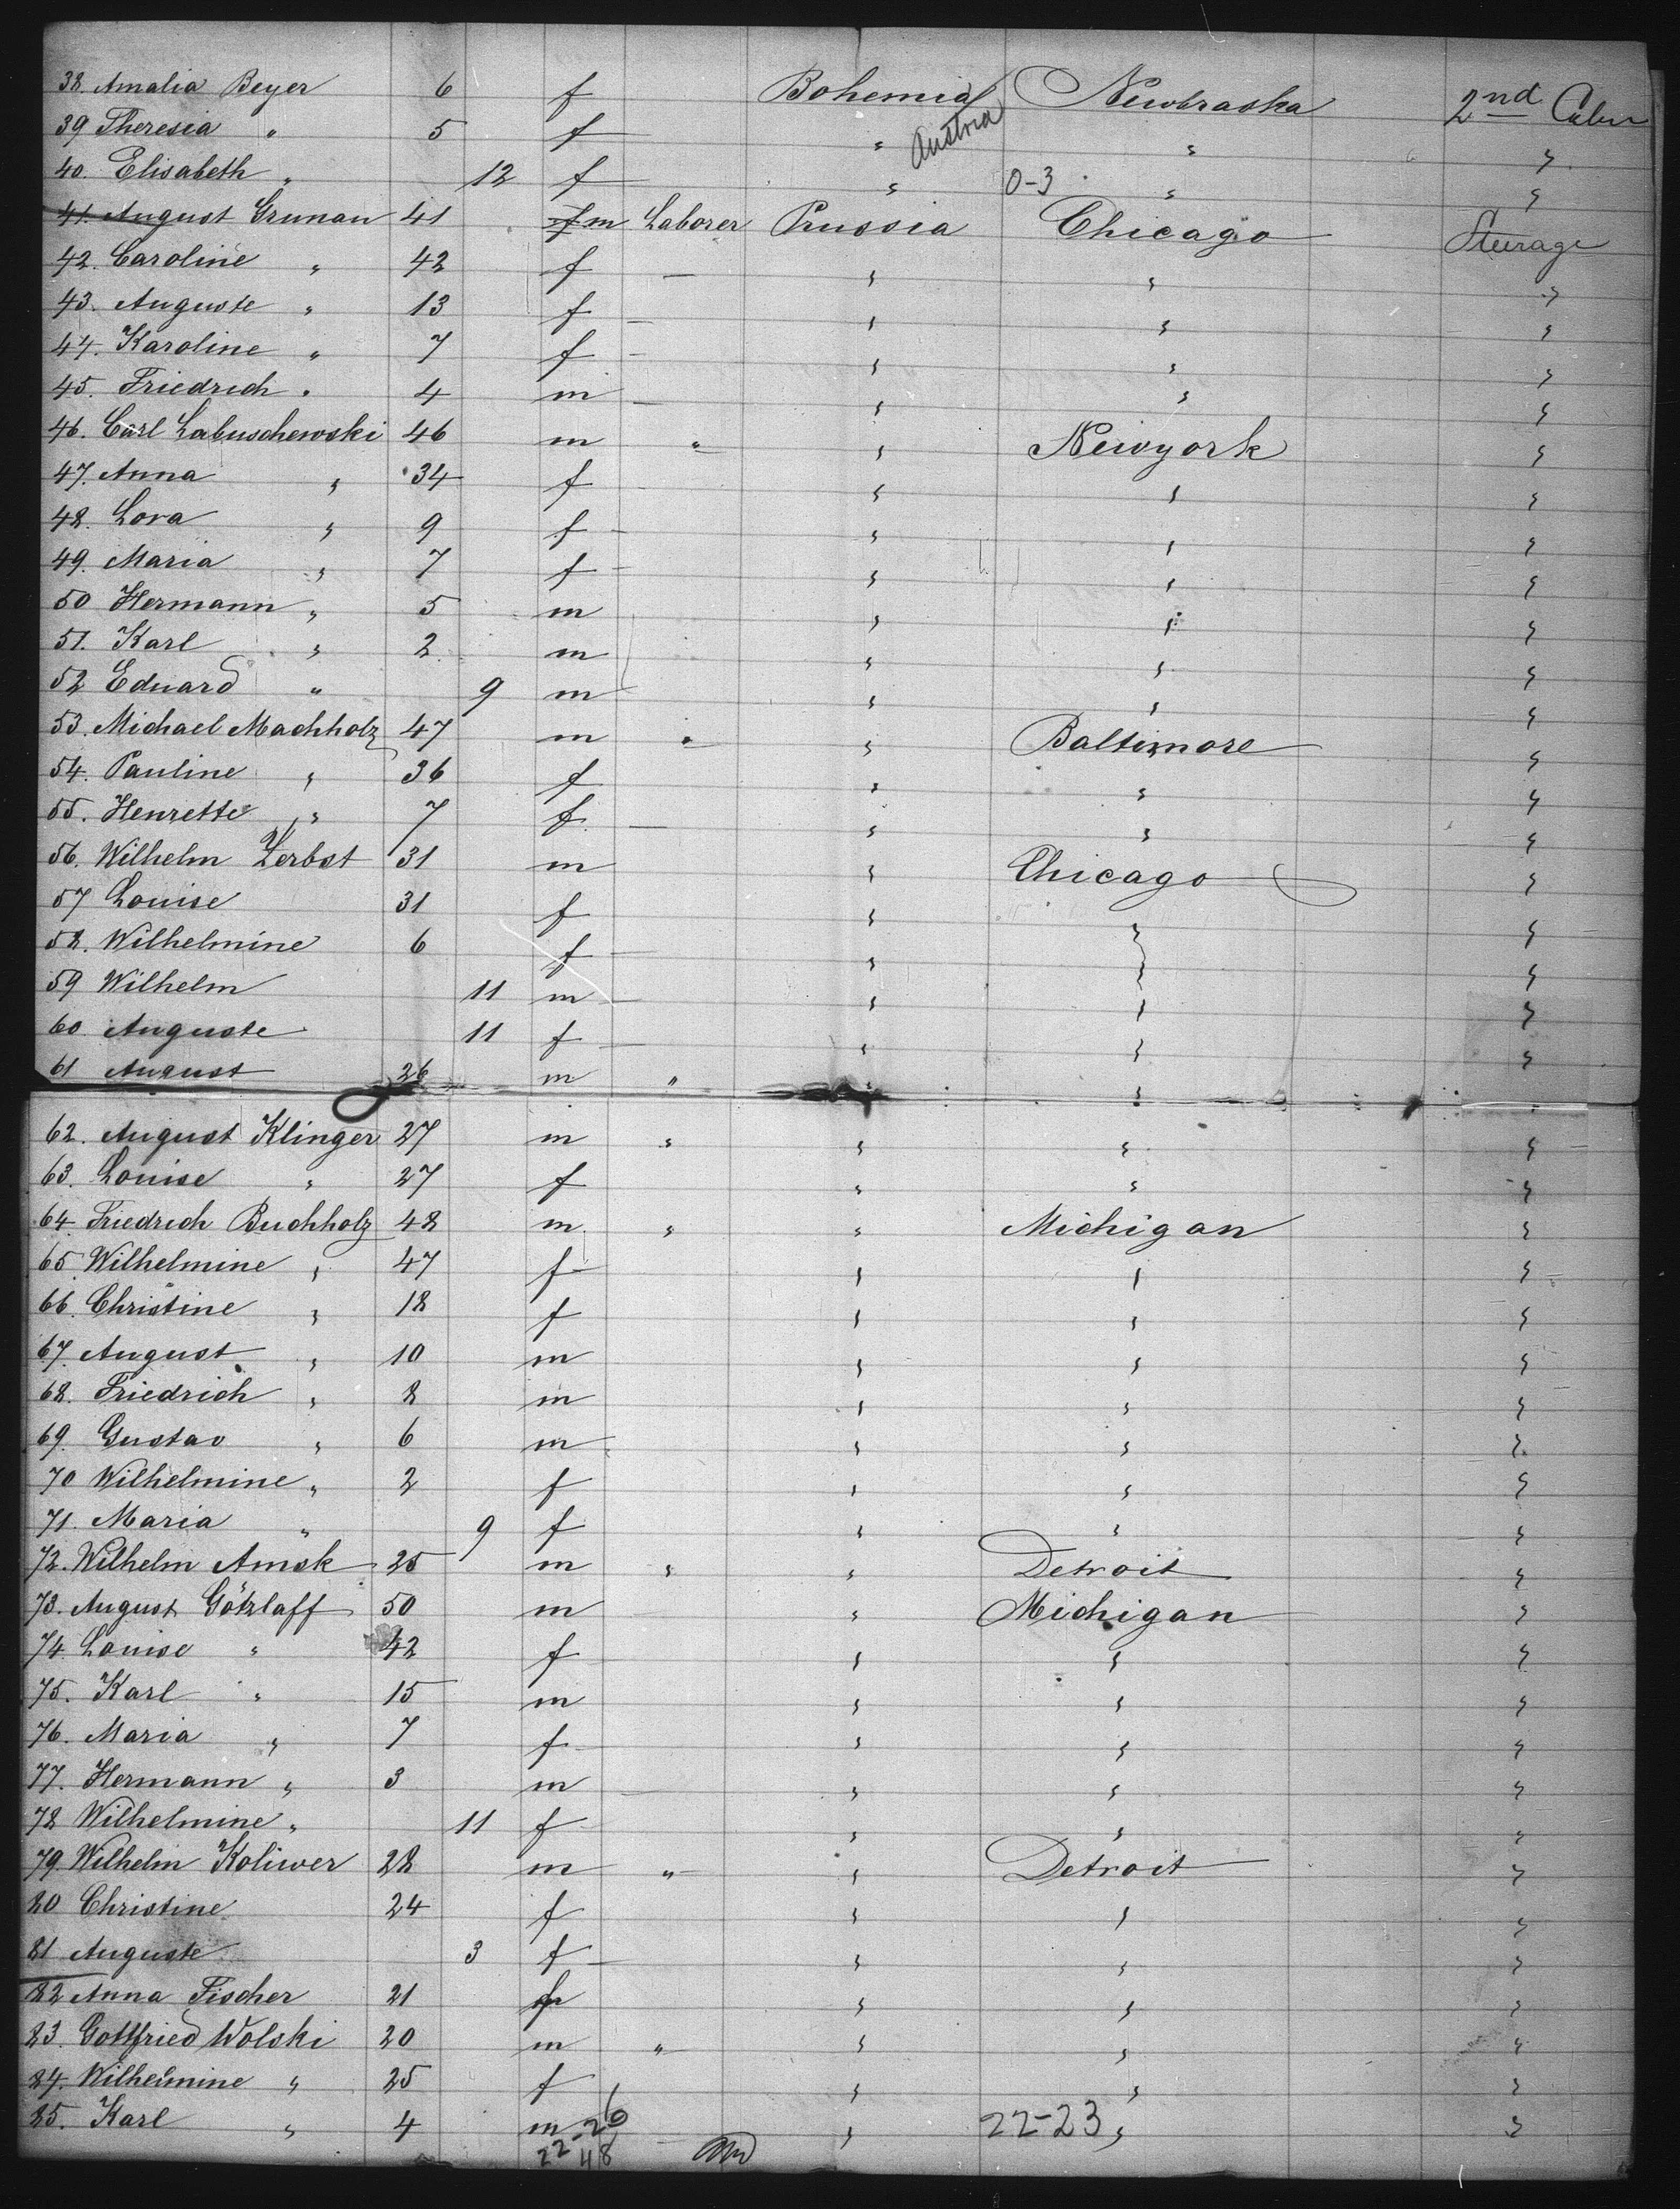 38. Amalia Beyer 6 f Bohemia Newbraska 2nd Cabin
39 Theresia " 5 f " Austria " "
40. Elisabeth " 12 f " 0-3 " "
41. August Grunau 41 m Laborer Prussia Chicago Steerage
42. Caroline " 42 f — " " "
43. Auguste " 13 f — " " "
44. Karoline " 7 f — " " "
45. Friedrich " 4 m — " " "
46. Carl Labuschewski 46 m " " Newyork "
47. Anna " 34 f — " " "
48. Lora " 9 f — " " "
49. Maria " 7 f — " " "
50 Hermann " 5 m " " "
51. Karl " 2 m " " "
52 Eduard " 9 m " " "
53. Michael Machholz 47 m " " Baltimore "
54. Pauline " 36 f " " "
55. Henrette " 7 f — " " "
56. Wilhelm Zerbst 31 m " Chicago "
57 Louise 31 f " " "
58. Wilhelmine 6 f — " " "
59 Wilhelm 11 m — " " "
60 Auguste 11 f — " " "
61 August 26 m " " " "
62. August Klinger 27 m " " " "
63. Louise " 27 f " " "
64 Friedrich Buchholz 48 m " " Michigan "
65 Wilhelmine " 47 f " " "
66. Christine " 18 f " " "
67. August " 10 m " " "
68. Friedrich " 8 m " " "
69. Gustav " 6 m " " "
70 Wilhelmine " 2 f " " "
71. Maria " 9 f " " "
72. Wilhelm Amsk 25 m " " Detroit "
73. August Götzlaff 50 m " Michigan "
74. Louise " 42 f " " "
75. Karl " 15 m " " "
76. Maria " 7 f " " "
77. Hermann " 3 m " " "
78 Wilhelmine " 11 f " " "
79. Wilhelm Koliwer 28 m " " Detroit "
80 Christine 24 f " " "
81 Auguste 3 f — " " "
82 Anna Fischer 21 f " " "
83. Gottfried Wolski 20 m " " " "
84. Wilhelmine " 25 f " " "
85. Karl " 4 m " 22-23 " "
22-26
48